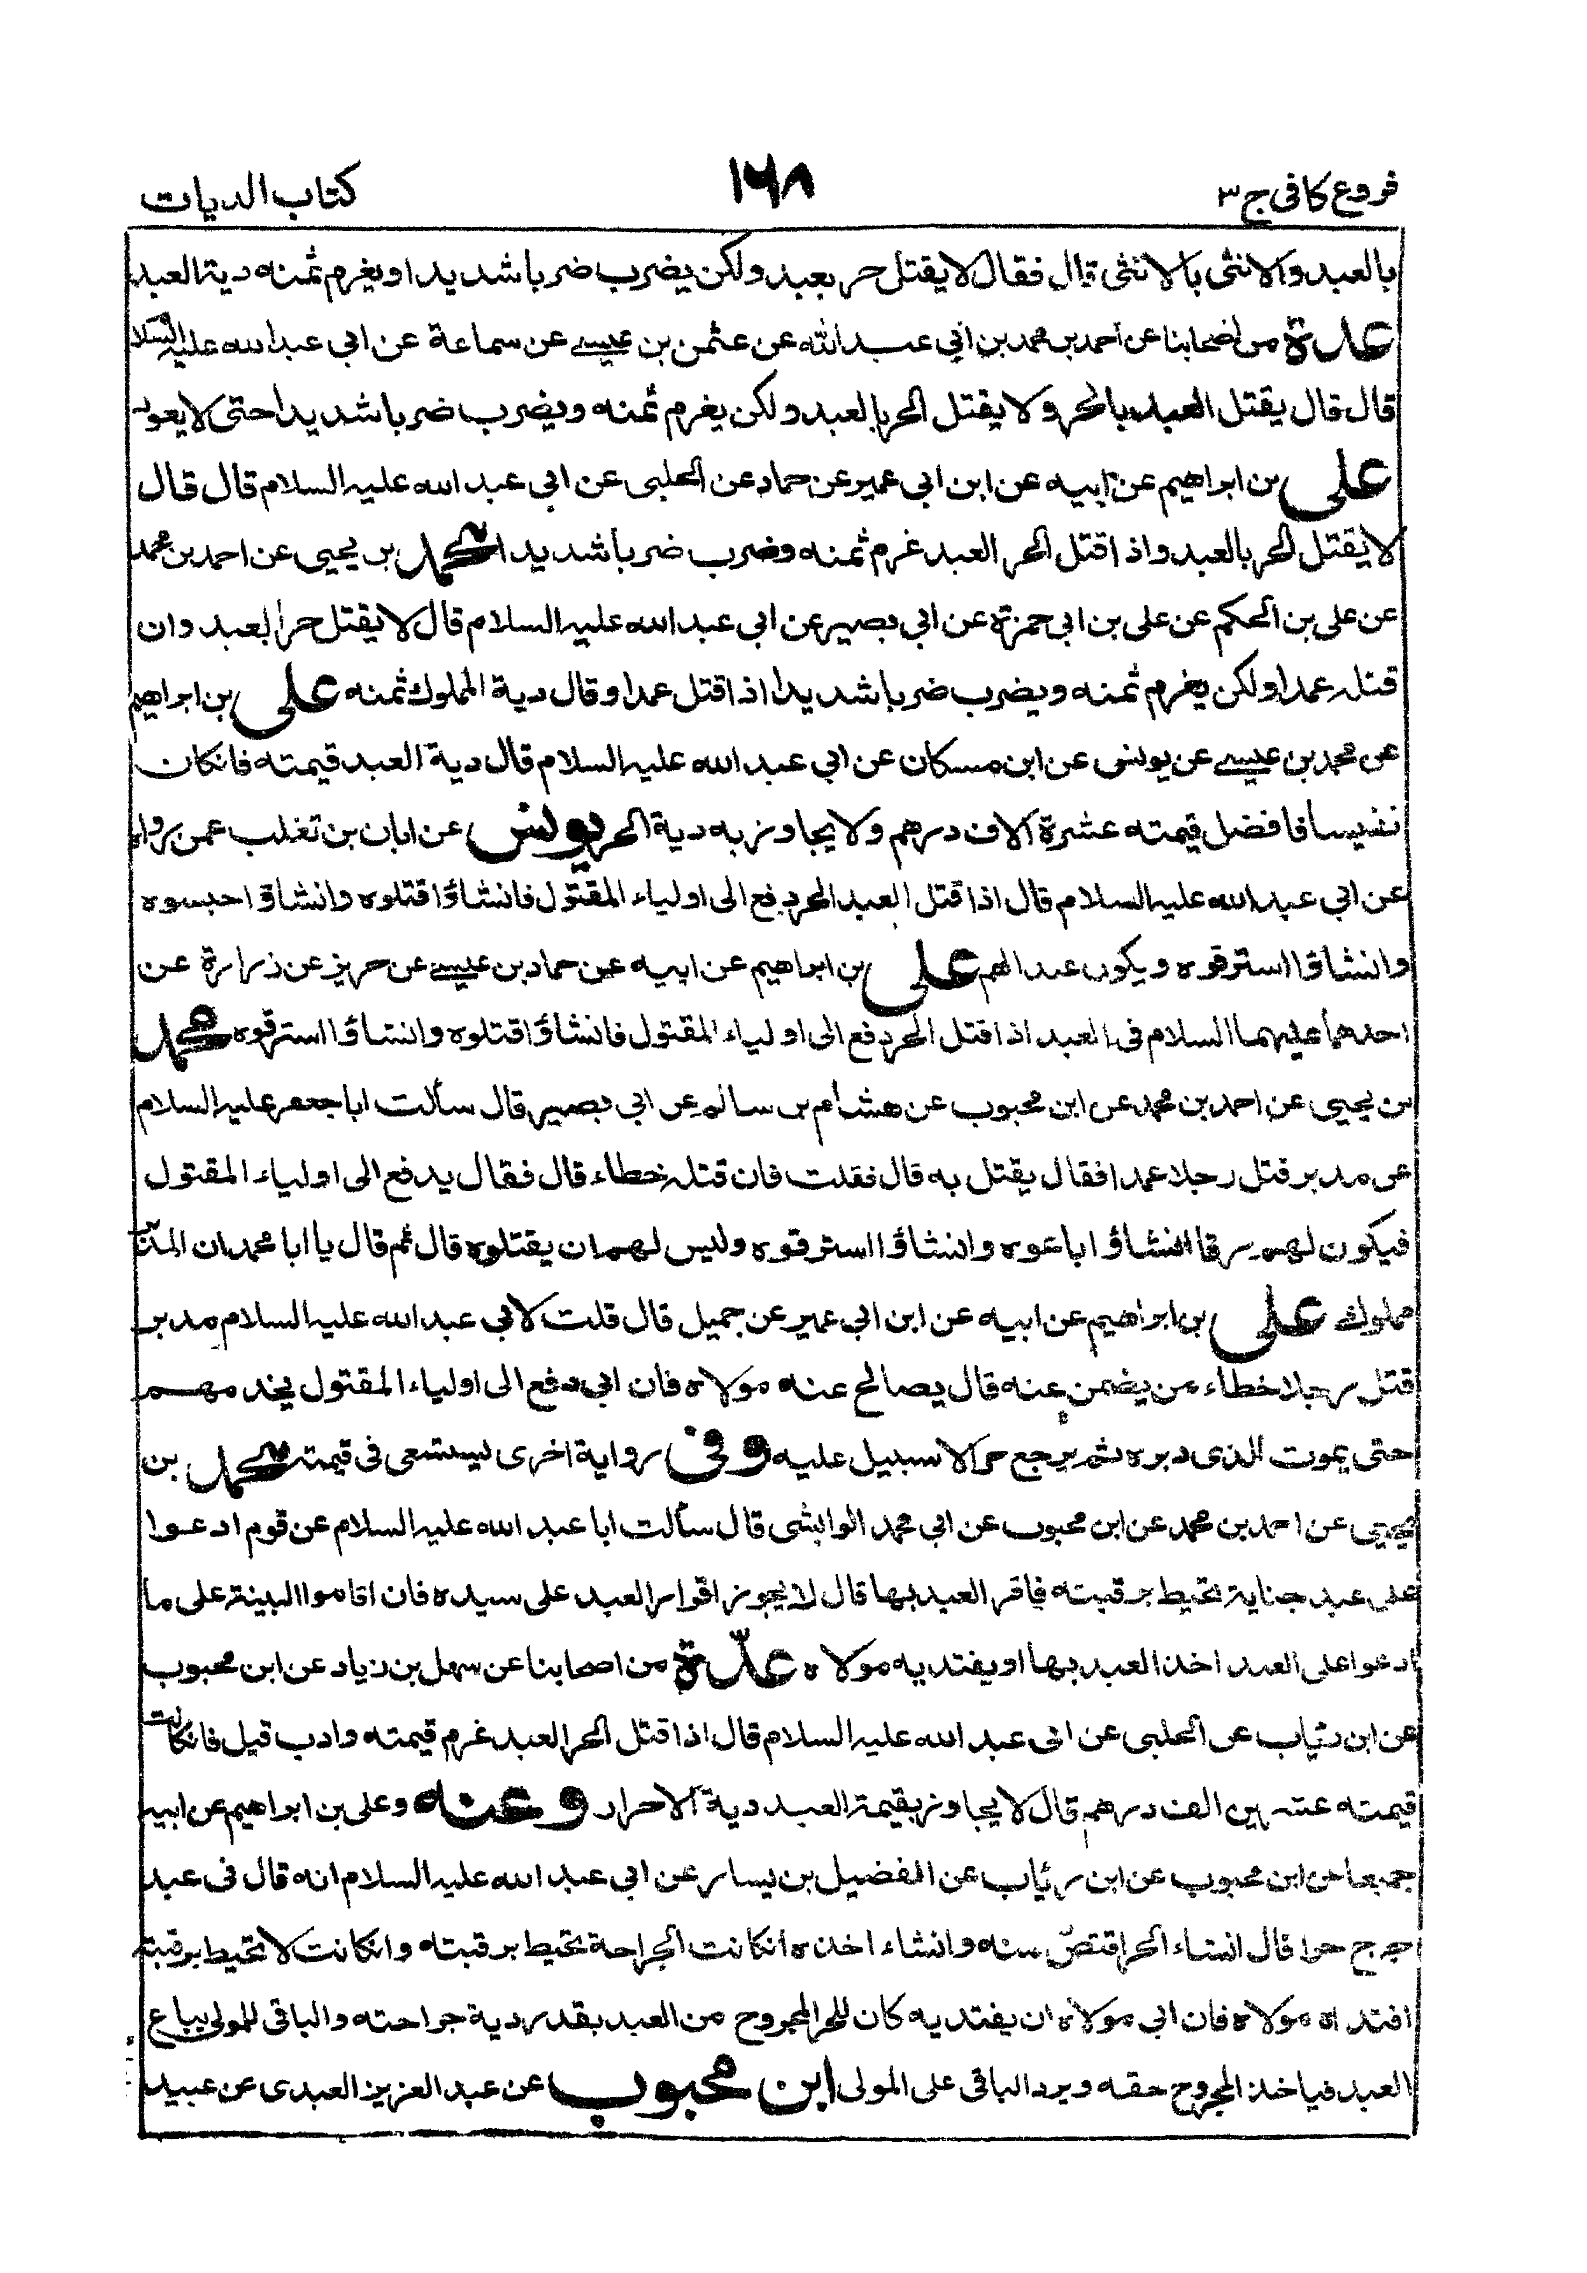 فروع كافى ج ٣
١٦٨
كتاب الديات
بالعبد والانثى بالانثى قال فقال لا يقتل حر بعبد ولكن يضرب ضربا شديدا ويغرم ثمنه دية العبد
عدة من اصحابنا عن احمد بن محمد بن ابي عبد الله عن عثمن بن عيسى عن سماعة عن ابي عبد الله عليه السلا
قال قال يقتل العبد بالحر ولا يقتل الحر بالعبد ولكن يغرم ثمنه ويضرب ضربا شديدا حتى لا يعود
على بن ابراهيم عن ابيه عن ابن ابي عمير عن حماد عن الحلبى عن ابي عبد الله عليه السلام قال قال
لا يقتل الحر بالعبد واذا قتل الحر العبد غرم ثمنه وضرب ضربا شديدا محمد بن يحيى عن احمد بن محمد
عن على بن الحكم عن على بن ابي حمزة عن ابي بصير عن ابي عبد الله عليه السلام قال لا يقتل حر بعبد وان
قتله عمدا ولكن يغرم ثمنه ويضرب ضربا شديدا اذا قتل عمدا وقال دية المملوك ثمنه على بن ابراهيم
عن محمد بن عيسى عن يونس عن ابن مسكان عن ابي عبد الله عليه السلام قال دية العبد قيمته فانكان
نفيسا فافضل قيمته عشرة آلاف درهم ولا يجاوز به دية الحر يونس عن ابان بن تغلب عمن رواه
عن ابي عبد الله عليه السلام قال اذا قتل العبد الحر دفع الى اولياء المقتول فانشاؤا قتلوه وانشاؤ احبسوه
وانشاؤا استرقوه ويكون عبدا لهم على بن ابراهيم عن ابيه عن حماد بن عيسى عن حريز عن زرارة عن
احدهما عليهما السلام فى العبد اذا قتل الحر دفع الى اولياء المقتول فانشاؤا قتلوه وانشاؤا استرقوه محمد
بن يحيى عن احمد بن محمد عن ابن محبوب عن هشام بن سالم عن ابي بصير قال سألت ابا جعفر عليه السلام
عن مدبر قتل رجلا عمدا فقال يقتل به قال فقلت فان قتله خطاء قال فقال يدفع الى اولياء المقتول
فيكون لهم رقا انشاؤ اباعوه وانشاؤا استرقوه وليس لهم ان يقتلوه قال ثم قال يا ابا محمد ان المدبر
مملوك على بن ابراهيم عن ابيه عن ابن ابي عمير عن جميل قال قلت لابي عبد الله عليه السلام مدبر
قتل رجلا خطاء من يضمن عنه قال يصالح عنه مولاه فان ابي دفع الى اولياء المقتول يخدمهم
حتى يموت الذى دبره ثم يرجع حرا لا سبيل عليه وفى رواية اخرى يستسعى فى قيمته محمد بن
يحيى عن احمد بن محمد عن ابن محبوب عن ابي محمد الوابشى قال سألت ابا عبد الله عليه السلام عن قوم ادعوا
على عبد جناية تحيط برقبته فاقر العبد بها قال لا يجوز اقرار العبد على سيده فان اقاموا البينة على ما
ادعوا على العبد اخذ العبد بها او يفتديه مولاه عدّة من اصحابنا عن سهل بن زياد عن ابن محبوب
عن ابن رئاب عن الحلبى عن ابى عبد الله عليه السلام قال اذا قتل الحر العبد غرم قيمته وادب قيل فانكانت
قيمته عشرين الف درهم قال لا يجاوز بقيمة العبد دية الاحرار وعنه وعلى بن ابراهيم عن ابيه
جميعا عن ابن محبوب عن ابن رئاب عن الفضيل بن يسار عن ابي عبد الله عليه السلام انه قال فى عبد
جرح حرا قال انشاء الحر اقتصّ منه وانشاء اخذه انكانت الجراحة تحيط برقبته وانكانت لا تحيط برقبته
افتداه مولاه فان ابى مولاه ان يفتديه كان للحر المجروح من العبد بقدر دية جراحته والباقى للمولى يباع
العبد فياخذ المجروح حقه ويرد الباقى على المولى ابن محبوب عن عبد العزيز العبدى عن عبيد